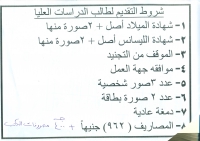 شروط التقديم لطالب الدراسات العليا
١- شهادة الميلاد أصل + ٢صورة منها
٢- شهادة الليسانس أصل + ٢صورة منها
٣- الموقف من التجنيد
٤- موافقه جهة العمل
٥- عدد ٣صور شخصية
٦- عدد ٢ صورة بطاقة
٧- دمغة عادية
٨- المصاريف (٩٦٢) جنيهاً +